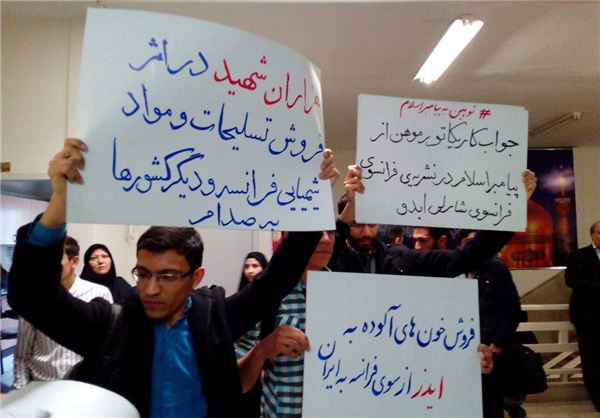 هزاران شهید در اثر
فروش تسلیحات و مواد
شیمیایی فرانسه و دیگر کشورها
به صدام
# توهین به پیامبر اسلام
جواب کاریکاتور موهن از
پیامبر اسلام در نشریه ی فرانسوی
فرانسوی شارلی ابدو
فروش خون های آلوده به
ایدز از سوی فرانسه به ایران